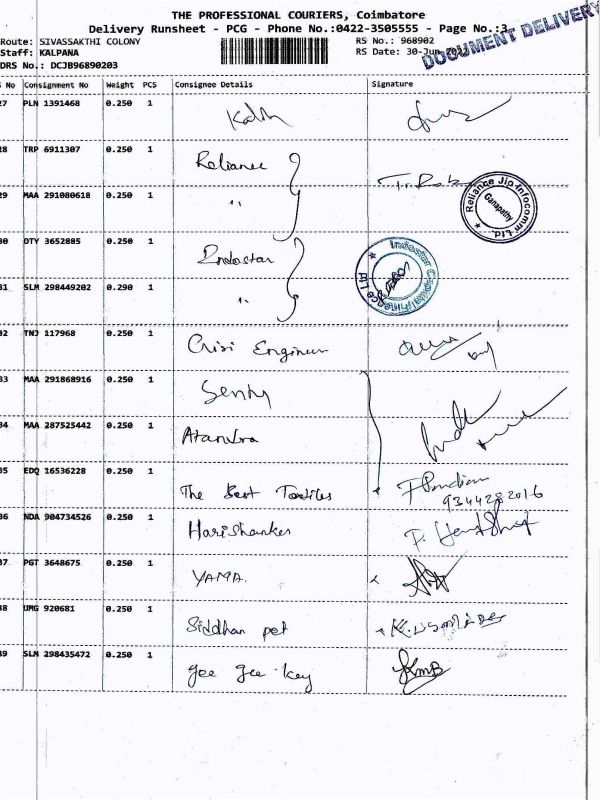 THE PROFESSIONAL COURIERS, Coimbatore
Delivery Runsheet - PCG - Phone No.:0422-3505555 - Page No.:3
DOCUMENT DELIVERY
Route: SIVASSAKTHI COLONY
RS No.: 968902
Staff: KALPANA
RS Date: 30-Jun-2023
DRS No.: DCJB96890203
No Consignment No Weight PCS Consignee Details Signature
27 PLN 1391468 0.250 1
28 TRP 6911307 0.250 1 Reliance
Reliance Jio Infocomm Ltd.
Ganapathy
29 MAA 291080618 0.250 1 "
30 OTY 3652885 0.250 1 Indostar
Indostar Capital Finance
31 SLM 298449202 0.290 1 "
32 TNJ 117968 0.250 1 Crisi Engineer
33 MAA 291868916 0.250 1
34 MAA 287525442 0.250 1
35 EDQ 16536228 0.250 1 The Best Textiles F Pandian
9344282016
36 NDA 904734526 0.250 1 Harishanker
37 PGT 3648675 0.250 1 YAMA.
38 UMG 920681 0.250 1 Siddhan pet
39 SLM 298435472 0.250 1 gee gee key